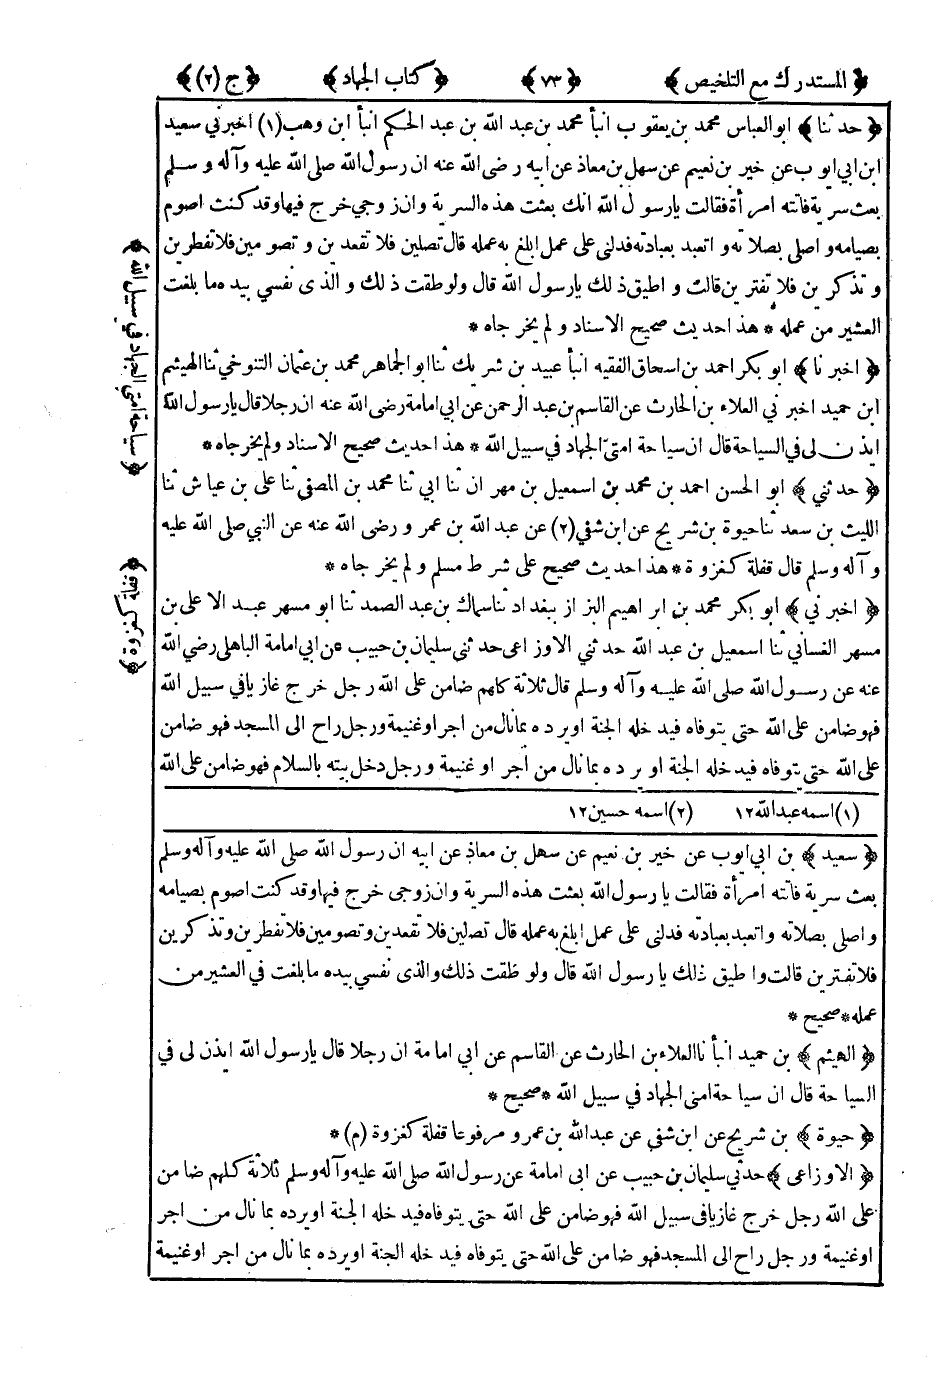 ﴿ المستدرك مع التلخيص ﴾ ﴿ ٧٣ ﴾ ﴿ كتاب الجهاد ﴾ ﴿ ج (٢) ﴾
﴿ حدثنا ﴾ ابو العباس محمد بن يعقوب انبأ محمد بن عبد الله بن عبد الحكم انبأ ابن وهب (١) اخبرني سعيد
ابن ابي ايوب عن خير بن نعيم عن سهل بن معاذ عن ابيه رضى الله عنه ان رسول الله صلى الله عليه وآله وسلم
بعث سرية فاتته امرأة فقالت يارسول الله انك بعثت هذه السرية وان زوجي خرج فيها وقد كنت اصوم
بصيامه واصلى بصلاته واتعبد بعبادته فدلنى على عمل ابلغ به عمله قال تصلين فلا تقعدين وتصومين فلا تفطرين
وتذكرين فلا تفترين قالت واطيق ذلك يارسول الله قال ولو طقت ذلك والذى نفسي بيده ما بلغت
العشير من عمله * هذا حديث صحيح الاسناد ولم يخرجاه *
﴿ اخبرنا ﴾ ابو بكر احمد بن اسحاق الفقيه انبأ عبيد بن شريك ثنا ابو الجماهر محمد بن عثمان التنوخي ثنا الهيثم
ابن حميد اخبرني العلاء بن الحارث عن القاسم بن عبد الرحمن عن ابي امامة رضى الله عنه ان رجلا قال يارسول الله
ايذن لى في السياحة قال ان سياحة امتى الجهاد في سبيل الله * هذا حديث صحيح الاسناد ولم يخرجاه *
﴿ حدثني ﴾ ابو الحسن احمد بن محمد بن اسمعيل بن مهران ثنا ابي ثنا محمد بن المصفى ثنا على بن عياش ثنا
الليث بن سعد ثنا حيوة بن شريح عن ابن شفي (٢) عن عبد الله بن عمرو رضى الله عنه عن النبي صلى الله عليه
وآله وسلم قال قفلة كغزوة * هذا حديث صحيح على شرط مسلم ولم يخرجاه *
﴿ اخبرني ﴾ ابو بكر محمد بن ابراهيم البزاز ببغداد ثنا سماك بن عبد الصمد ثنا ابو مسهر عبد الاعلى بن
مسهر الغساني ثنا اسمعيل بن عبد الله حدثني الاوزاعى حدثنى سليمان بن حبيب عن ابي امامة الباهلى رضي الله
عنه عن رسول الله صلى الله عليه وآله وسلم قال ثلاثة كلهم ضامن على الله رجل خرج غازيا في سبيل الله
فهو ضامن على الله حتى يتوفاه فيدخله الجنة او يرده بما نال من اجر او غنيمة ورجل راح الى المسجد فهو ضامن
على الله حتى يتوفاه فيدخله الجنة او يرده بما نال من أجر او غنيمة ورجل دخل بيته بالسلام فهو ضامن على الله
﴿ سياحة امتي الجهاد في سبيل الله ﴾
(١) اسمه عبدالله ١٢ (٢) اسمه حسين ١٢
﴿ سعيد ﴾ بن ابي ايوب عن خير بن نعيم عن سهل بن معاذ عن ابيه ان رسول الله صلى الله عليه وآله وسلم
بعث سرية فاتته امرأة فقالت يارسول الله بعثت هذه السرية وان زوجى خرج فيها وقد كنت اصوم بصيامه
واصلى بصلاته واتعبد بعبادته فدلنى على عمل ابلغ به عمله قال تصلين فلا تقعدين وتصومين فلا تفطرين وتذكرين
فلا تفترين قالت واطيق ذلك يارسول الله قال ولو طقت ذلك والذى نفسي بيده ما بلغت في العشير من
عمله * صحيح *
﴿ الهيثم ﴾ بن حميد انبأنا العلاء بن الحارث عن القاسم عن ابى امامة ان رجلا قال يارسول الله ايذن لى في
السياحة قال ان سياحة امتى الجهاد في سبيل الله * صحيح *
﴿ حيوة ﴾ بن شريح عن ابن شفي عن عبدالله بن عمرو مرفوعا قفلة كغزوة (م) *
﴿ الاوزاعى ﴾ حدثني سليمان بن حبيب عن ابى امامة عن رسول الله صلى الله عليه وآله وسلم ثلاثة كلهم ضامن
على الله رجل خرج غازيا في سبيل الله فهو ضامن على الله حتى يتوفاه فيدخله الجنة او يرده بما نال من اجر
او غنيمة ورجل راح الى المسجد فهو ضامن على الله حتى يتوفاه فيدخله الجنة او يرده بما نال من اجر او غنيمة